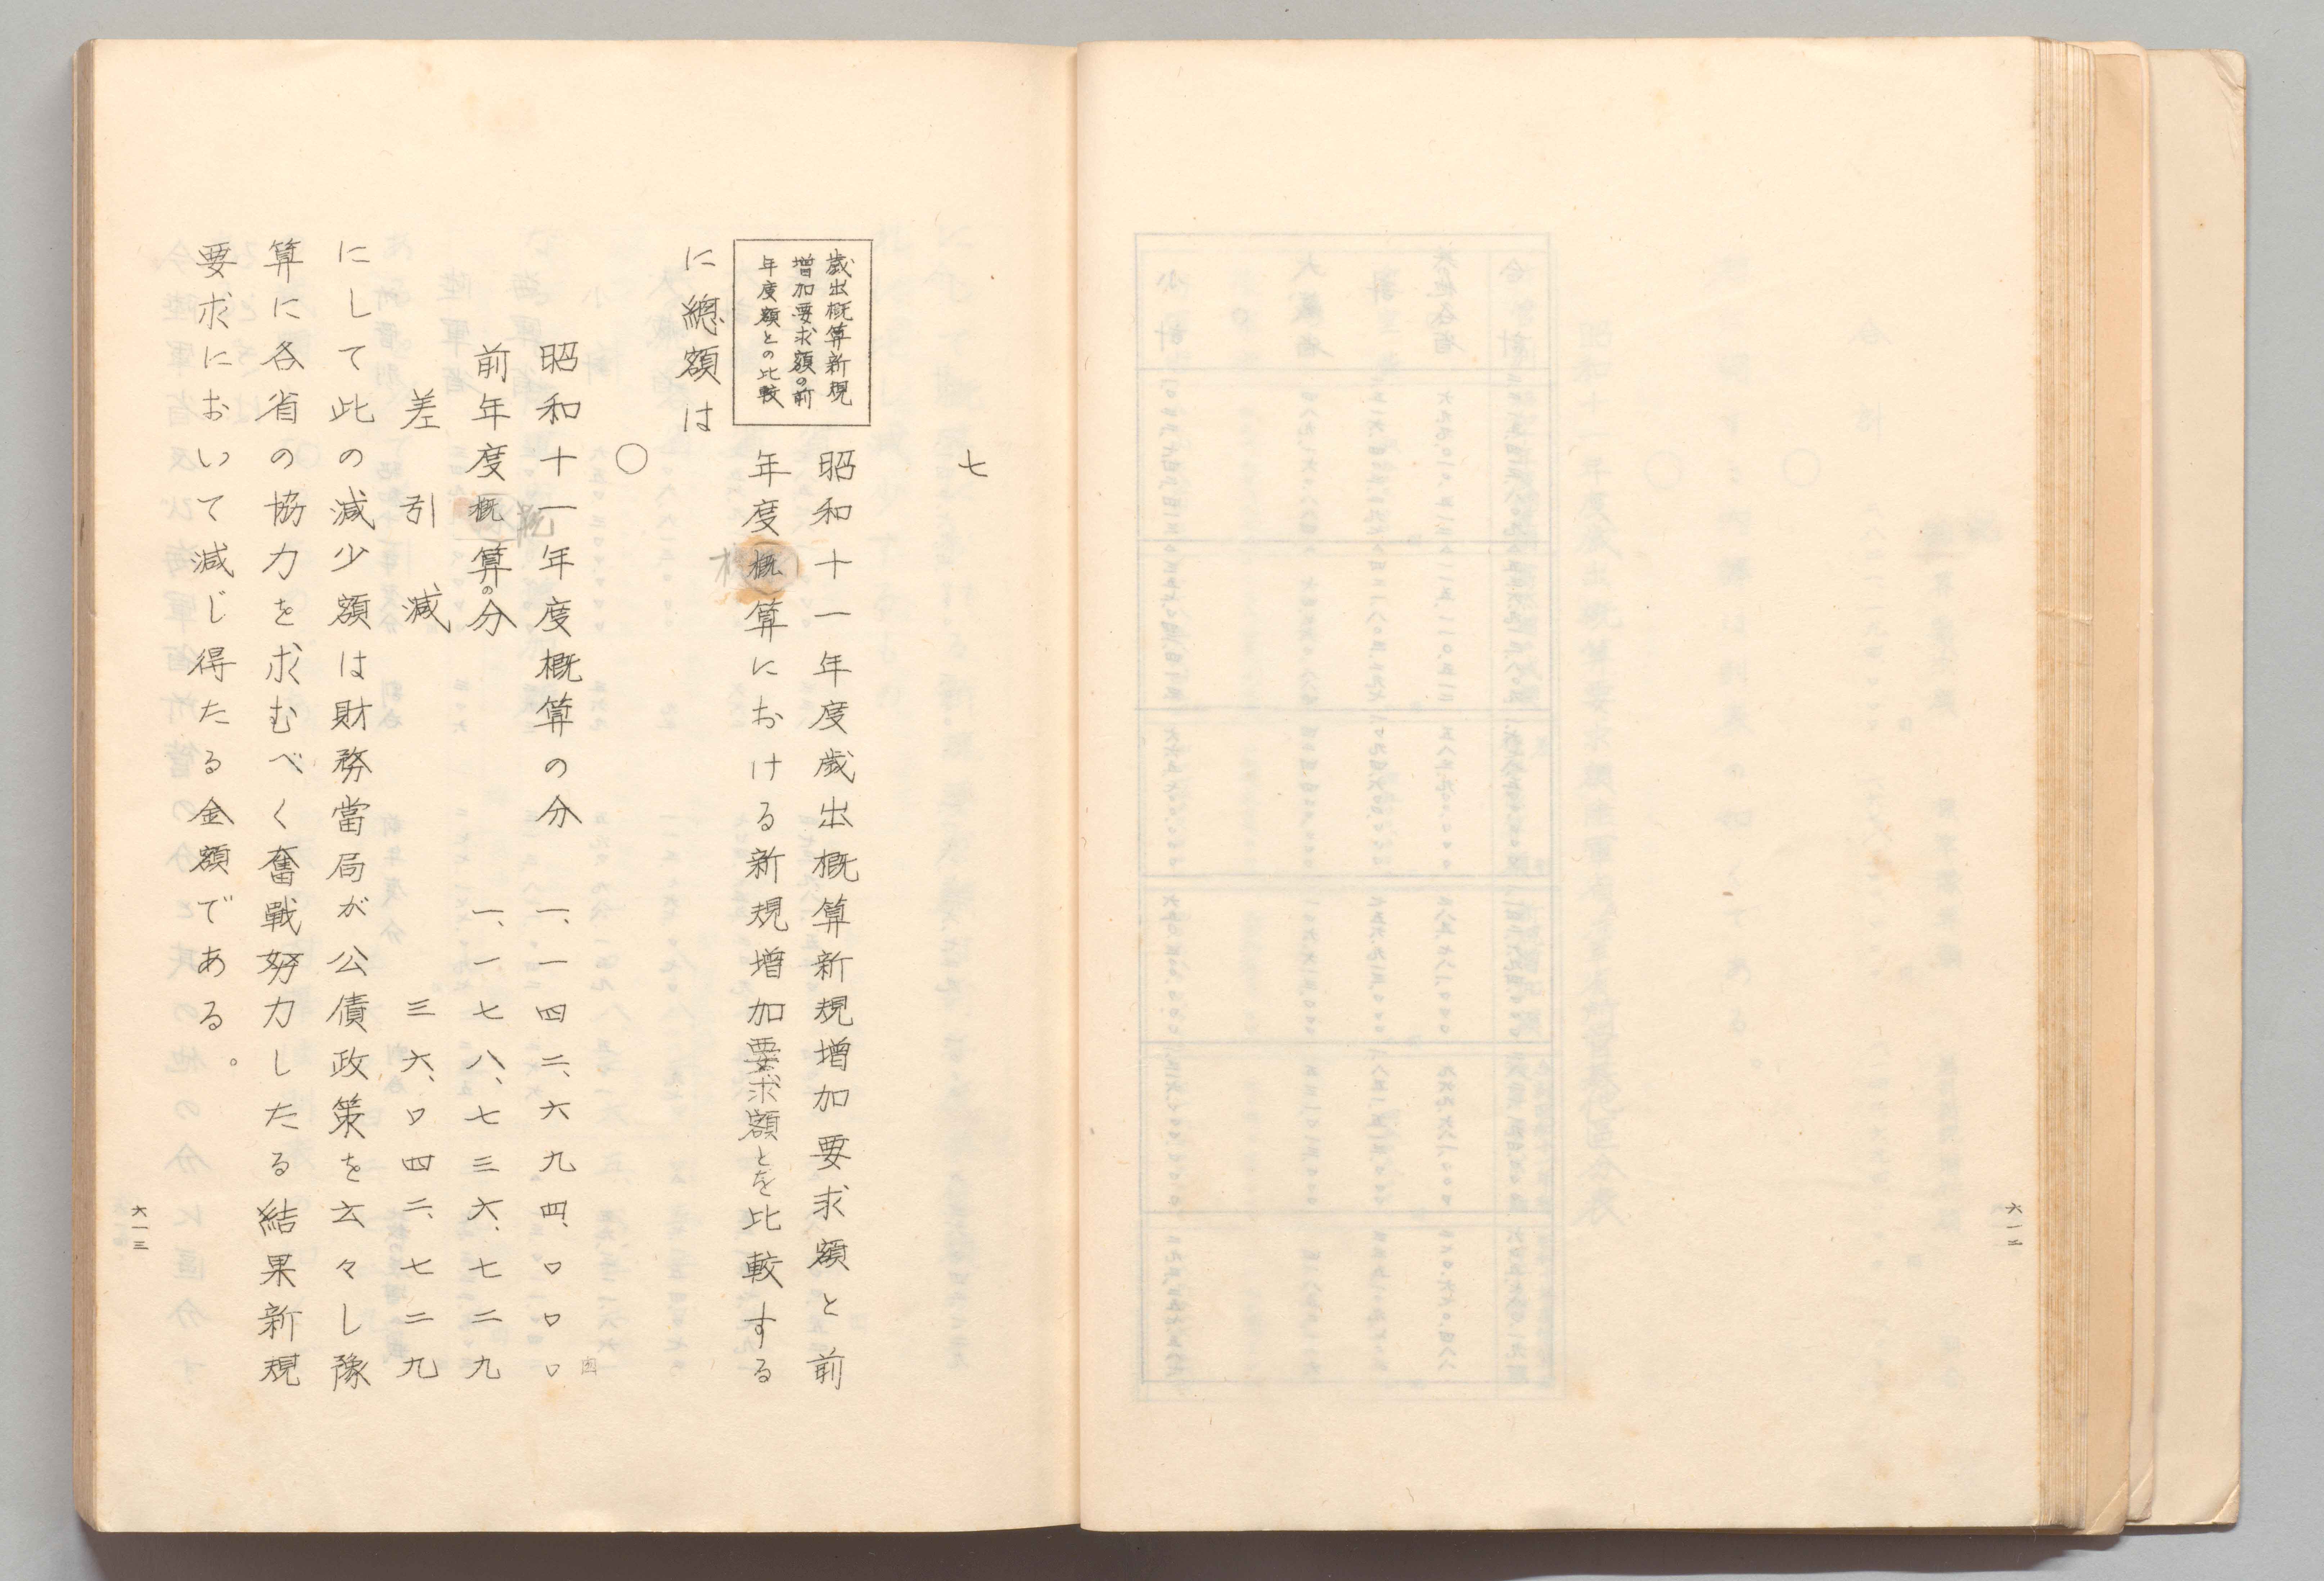 六一二
七
歳出概算新規
増加要求額の前
年度額との比較
昭和十一年度歳出概算新規増加要求額と前
年度概算における新規増加要求額とを比較する
に總額は
〇
昭和十一年度概算の分 一、一四二、六九四、〇〇〇
円
前年度概算の分 一、一七八、七三六、七二九
差引減 三六、〇四二、七二九
にして此の減少額は財務當局が公債政策を云々し豫
算に各省の協力を求むべく奮戰努力したる結果新規
要求において減じ得たる金額である。
六一三